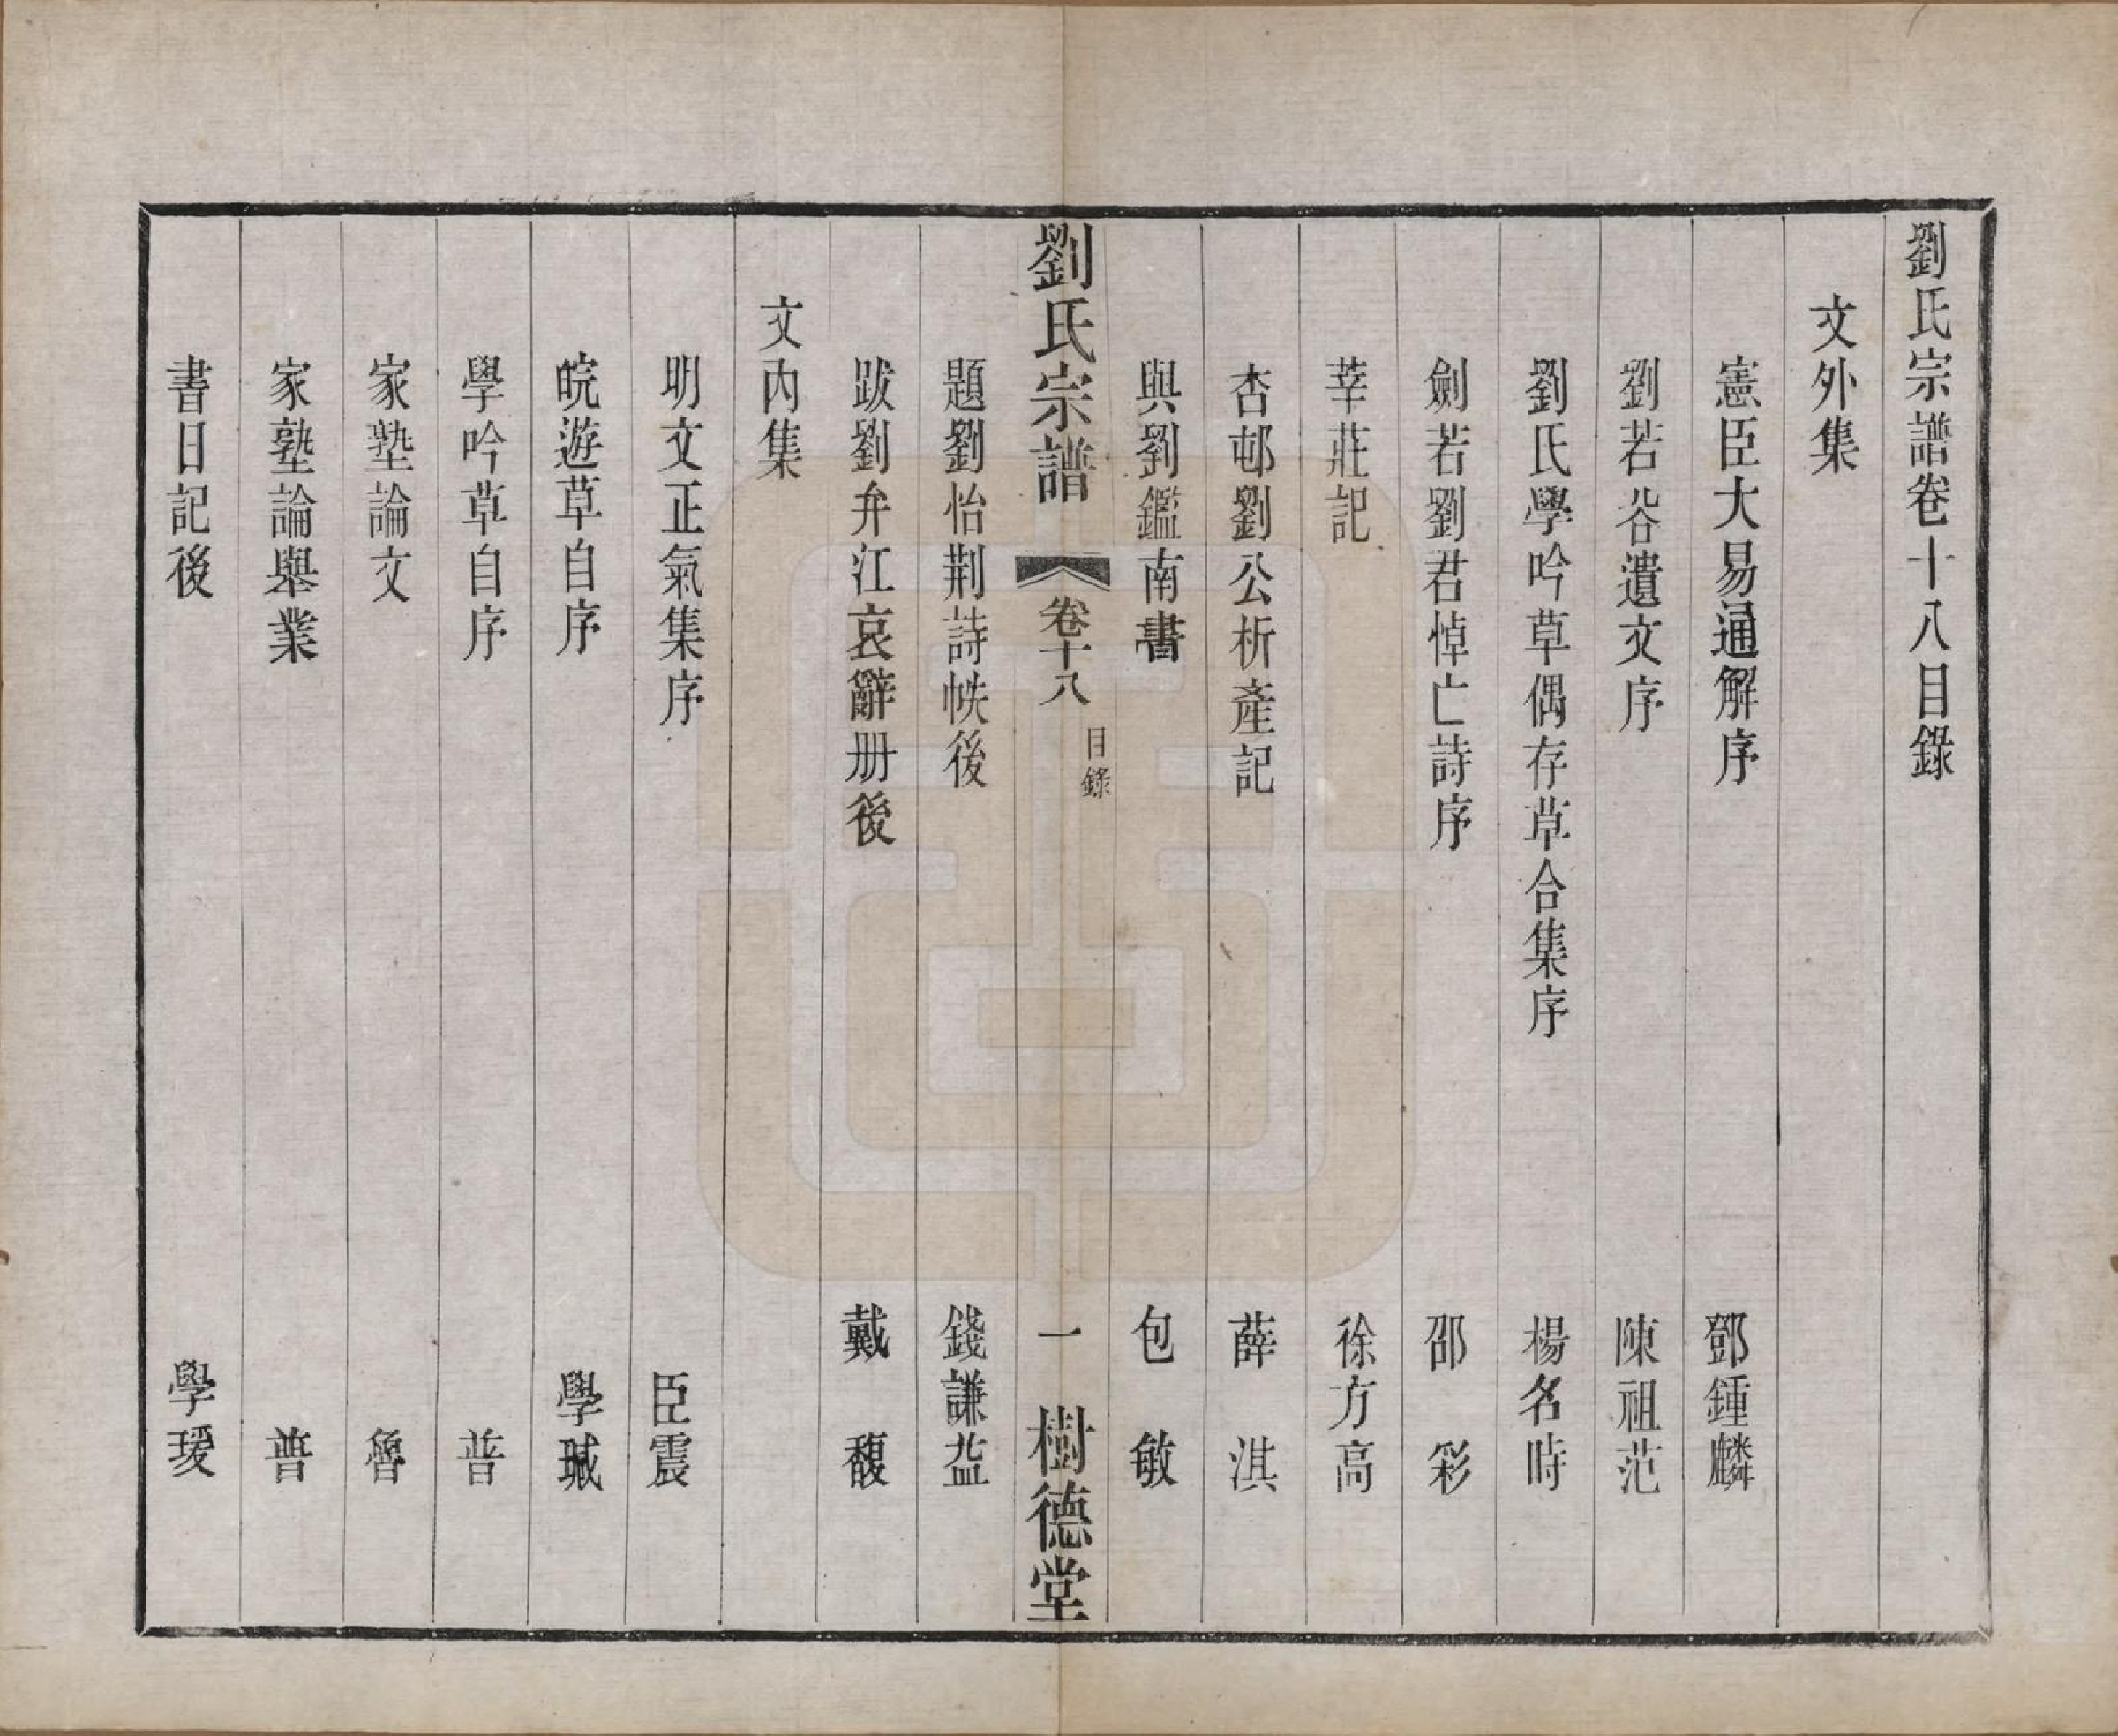 劉氏宗譜卷十八目錄
文外集
憲臣大易通解序 鄧鍾麟
劉若谷遺文序 陳祖范
劉氏學吟草偶存草合集序 楊名時
劍若劉君悼亡詩序 邵彩
莘莊記 徐方高
杏邨劉公析產記 薛淇
與劉鑑南書 包敏
劉氏宗譜 卷十八 目錄 一 樹德堂
題劉怡荆詩帙後 錢謙益
跋劉弁江哀辭册後 戴馥
文內集
明文正氣集序 臣震
皖遊草自序 學瑊
學吟草自序 普
家塾論文 魯
家塾論舉業 普
書日記後 學瑗